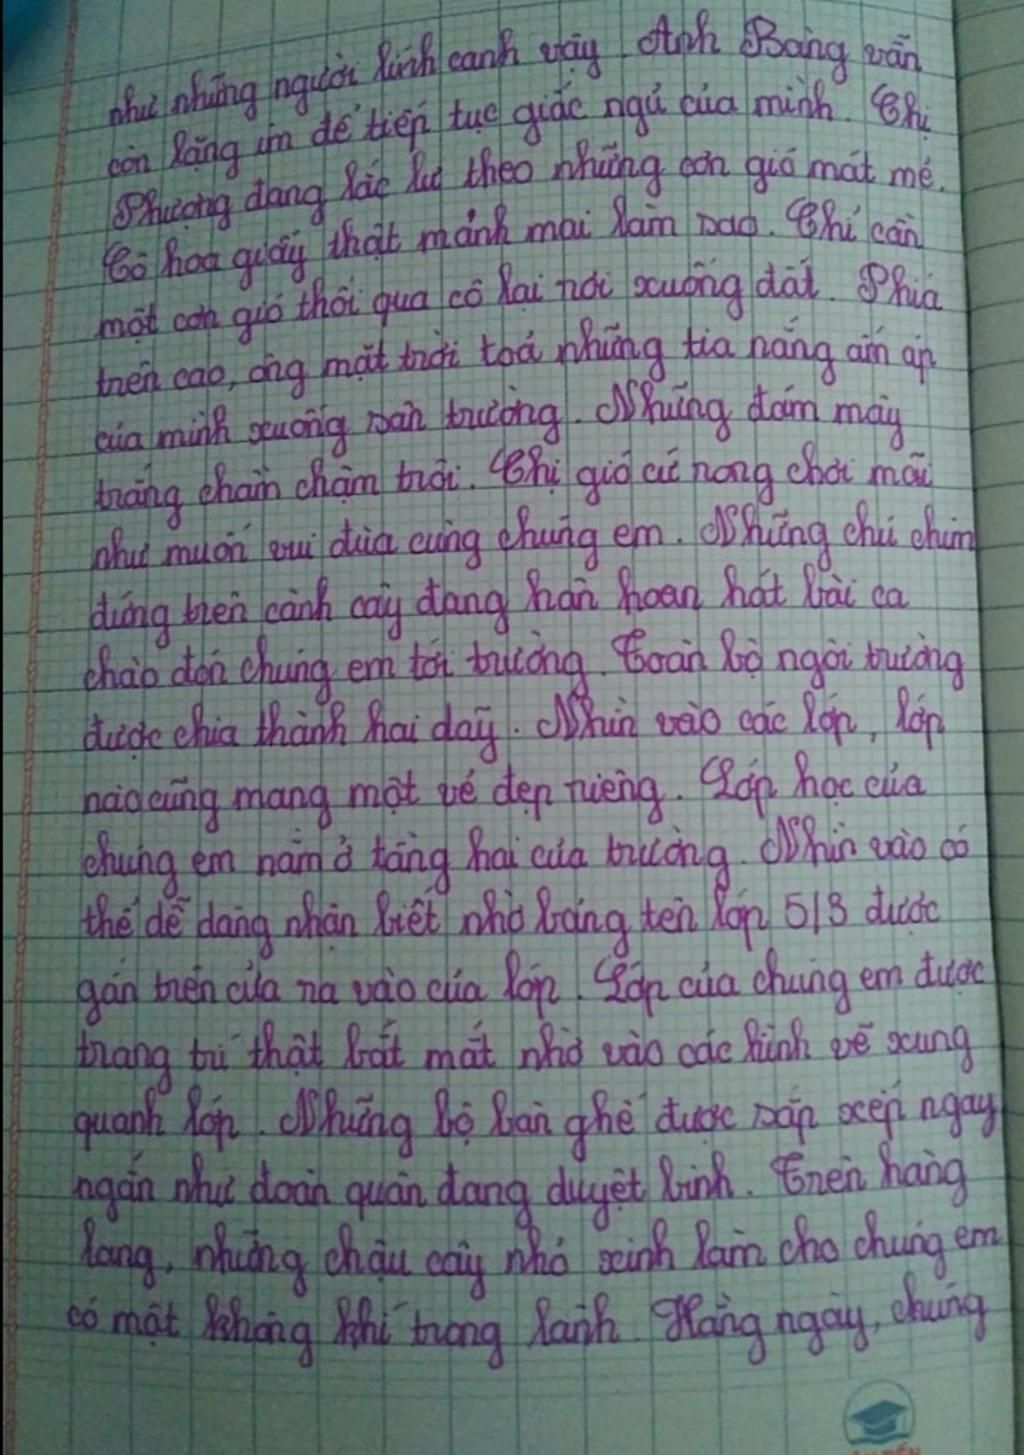 như những người lính canh vậy. Anh Bàng vẫn
còn lặng im để tiếp tục giấc ngủ của mình. Chị
Phượng đang lắc lư theo những cơn gió mát mẻ.
Cô hoa giấy thật mảnh mai làm sao. Chỉ cần
một cơn gió thổi qua cô lại rơi xuống đất. Phía
trên cao, ông mặt trời toả những tia nắng ấm áp
của mình xuống sân trường. Những đám mây
trắng chầm chậm trôi. Chị gió cứ rong chơi mãi
như muốn vui đùa cùng chúng em. Những chú chim
đứng trên cành cây đang hân hoan hát bài ca
chào đón chúng em tới trường. Toàn bộ ngôi trường
được chia thành hai dãy. Nhìn vào các lớp, lớp
nào cũng mang một vẻ đẹp riêng. Lớp học của
chúng em nằm ở tầng hai của trường. Nhìn vào có
thể dễ dàng nhận biết nhờ bảng tên lớp 5/3 được
gắn trên cửa ra vào của lớp. Lớp của chúng em được
trang trí thật bắt mắt nhờ vào các hình vẽ xung
quanh lớp. Những bộ bàn ghế được sắp xếp ngay
ngắn như đoàn quân đang duyệt binh. Trên hàng
lang, những chậu cây nhỏ xinh làm cho chúng em
có một không khí trong lành. Hằng ngày, chúng